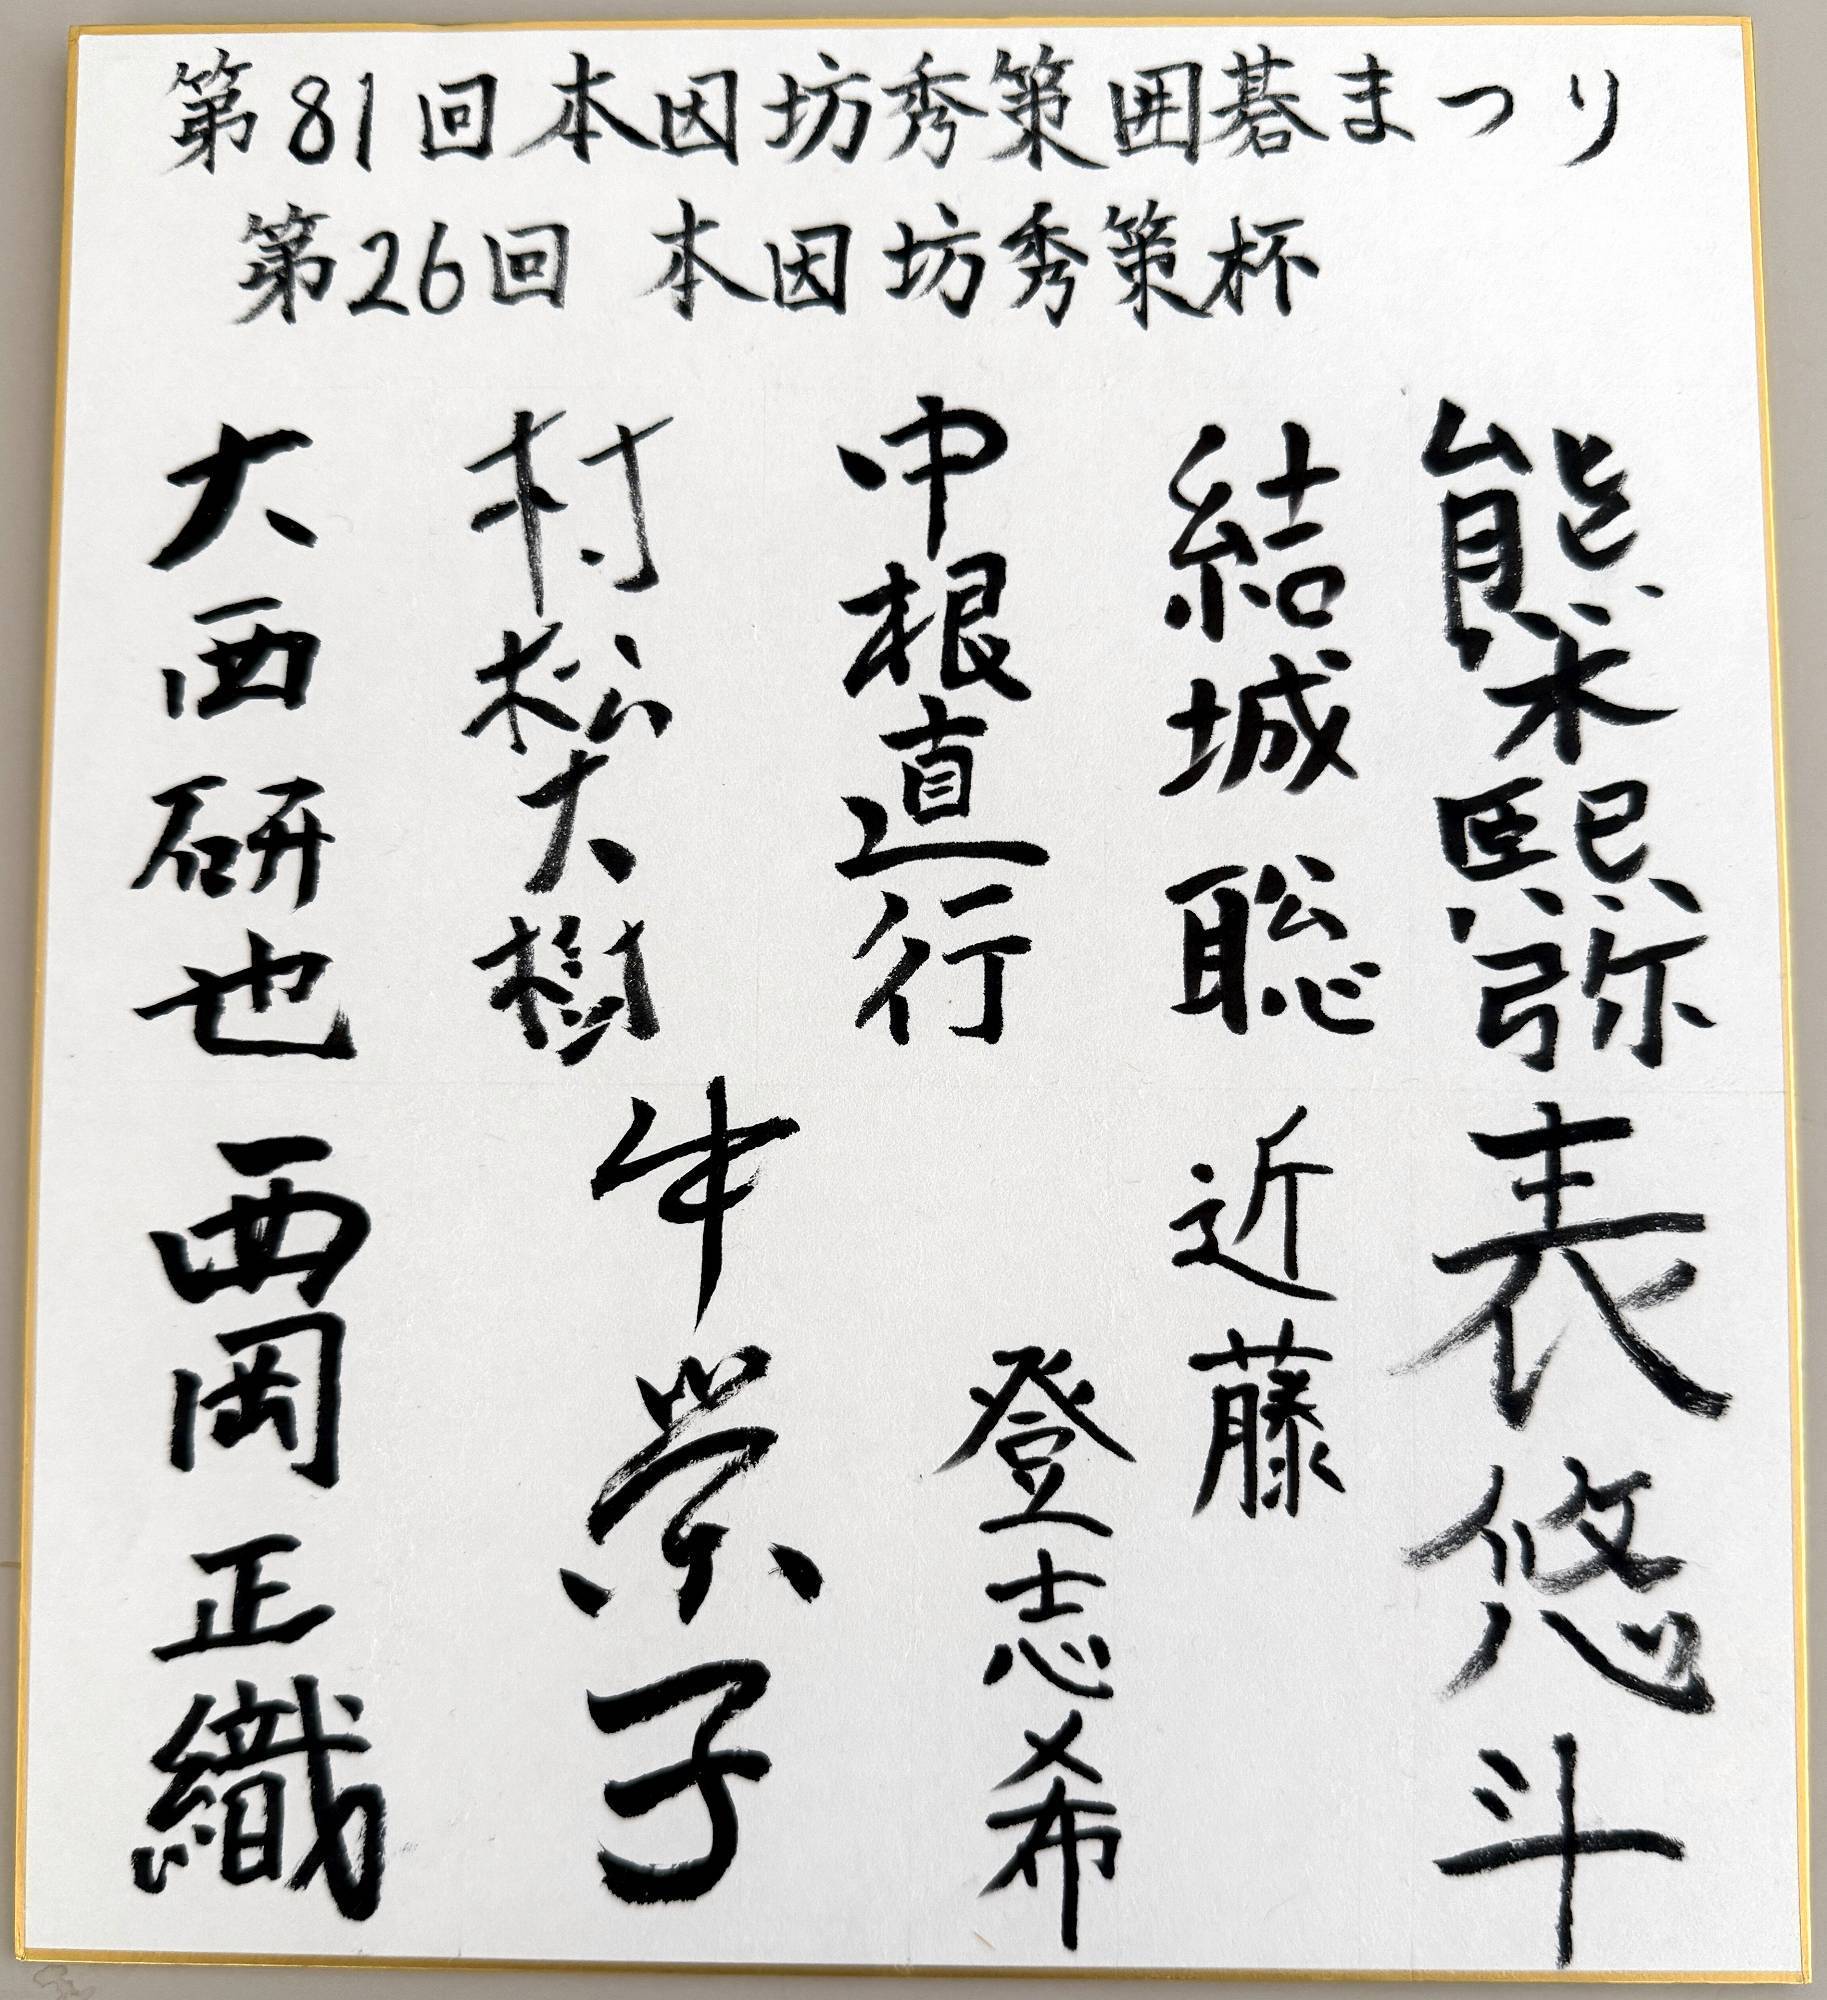 第81回本因坊秀策囲碁まつり
第26回 本因坊秀策杯
熊木熙弥
結城聡
中根直行
村松大樹
大西研也
表悠斗
近藤
登志希
牛栄子
西岡正織